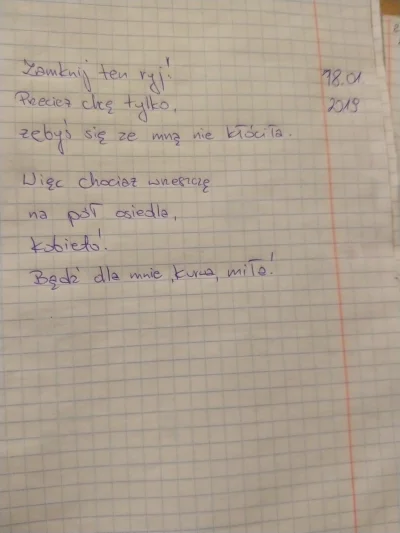 Zamknij ten ryj! 18.01
Przecież chcę tylko, 2019
żebyś się ze mną nie kłóciła.
Więc chociaż wrzeszczę
na pół osiedla,
kobieto!
Bądź dla mnie, kurwa, miła!